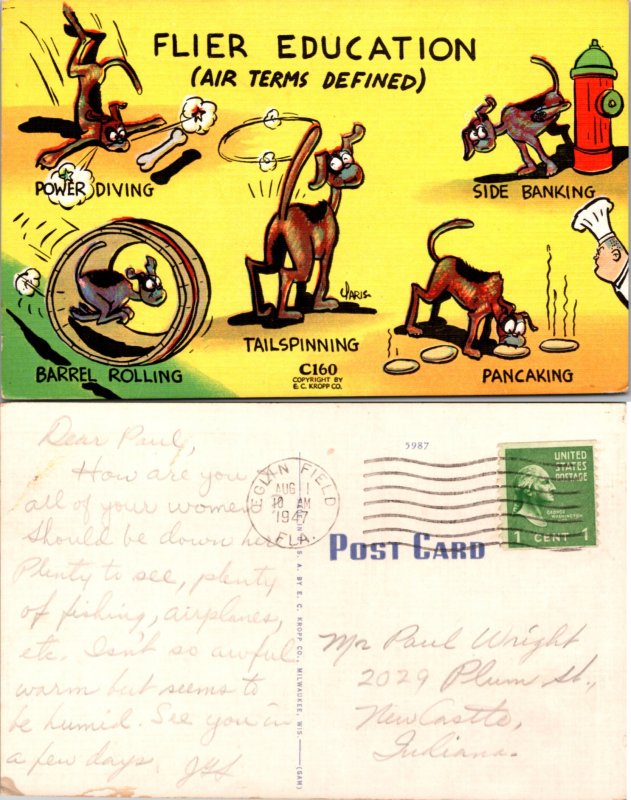 FLIER EDUCATION
(AIR TERMS DEFINED)
POWER DIVING
SIDE BANKING
TAILSPINNING
BARREL ROLLING
PANCAKING
C160
COPYRIGHT BY
E. C. KROPP CO.
Dear Paul,
How are you
all of your women
Should be down here
Plenty to see, plenty
of fishing, airplanes,
etc. Isn't so awful
warm but seems to
be humid. See you in
a few days.
5987
EGLIN FIELD
AUG 1
10 AM
1947
FLA.
UNITED
STATES
POSTAGE
GEORGE WASHINGTON
1 CENT 1
POST CARD
U. S. A. BY E. C. KROPP CO., MILWAUKEE, WIS.
Mr Paul Wright
2029 Plum St.,
New Castle,
Indiana.